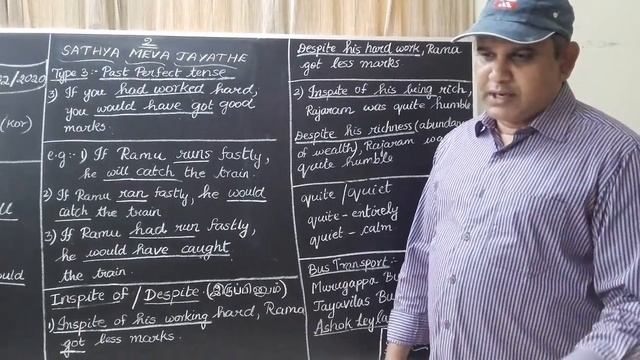 22/2020
(Kor)
ould
2
SATHYA MEVA JAYATHE
Type 3:- Past Perfect tense
3) If you had worked hard,
you would have got good
marks.
e.g:- 1) If Ramu runs fastly,
he will catch the train.
2) If Ramu ran fastly, he would
catch the train
3) If Ramu had run fastly,
he would have caught
the train.
Inspite of / Despite (இருப்பினும்)
1) Inspite of his working hard, Rama
got less marks.
Despite his hard work, Rama
got less marks
2) Inspite of his being rich,
Rajaram was quite humble
Despite his richness (abundan
of wealth), Rajaram wa
quite humble
quite / quiet
quite - entirely
quiet - calm
Bus Transport:-
Muugappa Bu
Jayavilas Bu
Ashok Leyla